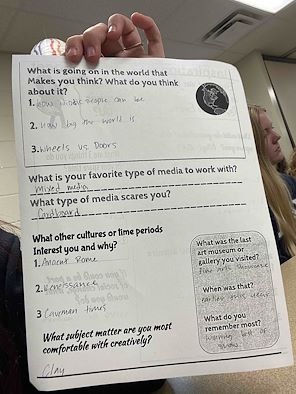 What is going on in the world that
Makes you think? What do you think
about it?
1. How people can be
2. How big the world is
3. Wheels vs Doors
What is your favorite type of media to work with?
Mixed media
What type of media scares you?
Cardboard
What other cultures or time periods
Interest you and why?
1. Ancient Rome
2. Renaissance
3 Caveman times
What subject matter are you most
comfortable with creatively?
Clay
What was the last
art museum or
gallery you visited?
Fine Arts
When was that?
earlier this year
What do you
remember most?
of